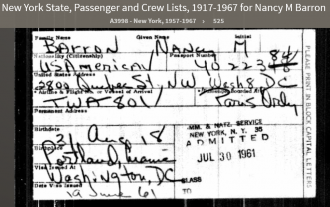 New York State, Passenger and Crew Lists, 1917-1967 for Nancy M Barron
A3998 - New York, 1957-1967 › 525
Family Name Given Name Initial
BARRON Nancy M
Nationality (Citizenship) Passport Number
US American
United States Address
NW Wash 8 DC
Airline & Flight No. or Vessel of Arrival
TWA 801 Paris Orly
Permanent Address
Birthdate
21 Aug 18
Birthplace
Portland, Maine
Visa Issued At
Washington, DC
Date Visa Issued
19 June 61
IMM. & NATZ. SERVICE
NEW YORK, N. Y. 35
ADMITTED
JUL 30 1961
CLASS
TO
PLEASE PRINT IN BLOCK CAPITAL LETTERS